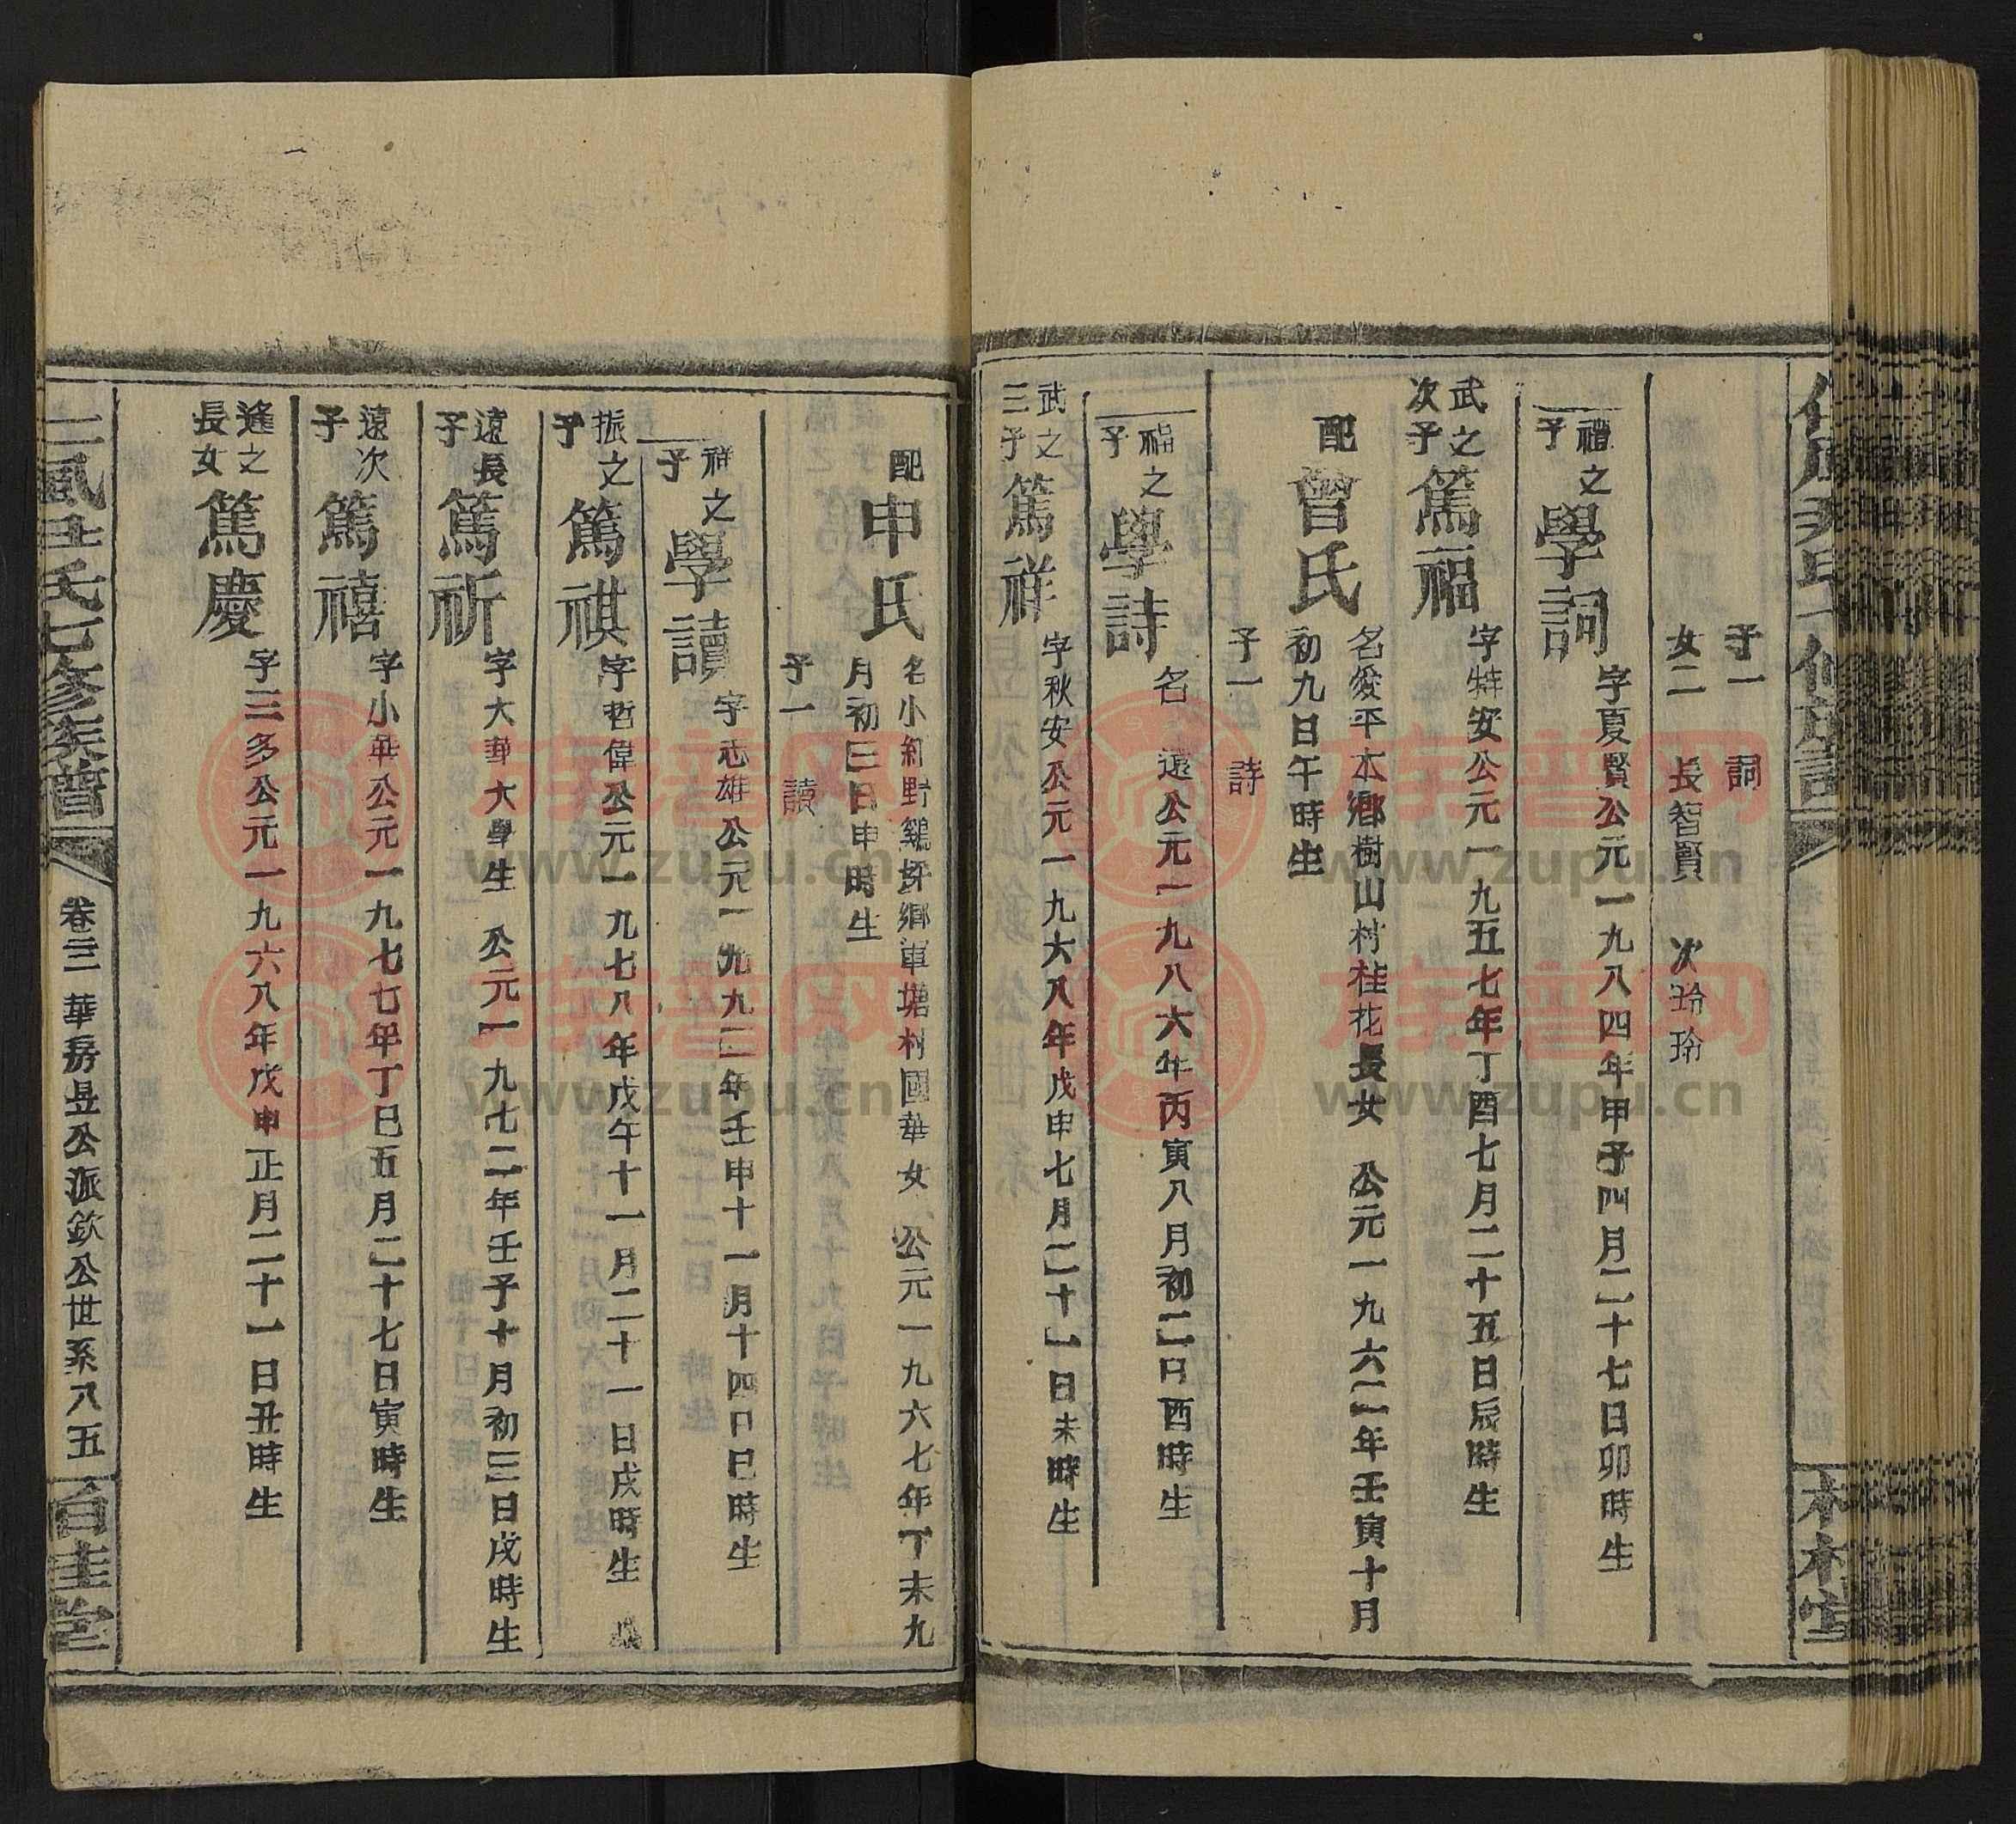 子一 詞
女二 長智賢 次玲玲
禮之子 學詞 字夏賢公元一九八四年甲子四月二十七日卯時生
武之次子 篤福 字特安公元一九五七年丁酉七月二十五日辰時生
配 曾氏 名俊平木鄉樹山村桂花長女 公元一九六二年壬寅十月
初九日午時生
子一 詩
福之子 學詩 名 遠公元一九八六年丙寅八月初二日酉時生
武之三子 篤祥 字秋安公元一九六八年戊申七月二十一日未時生
配 申氏 名小紅野鷄坪鄉軍塘村國華女 公元一九六七年丁未九
月初三日申時生
子一 讀
祥之子 學讀 字志雄公元一九九二年壬申十一月十四日巳時生
振之子 篤祺 字哲偉公元一九七八年戊午十一月二十一日戌時生
遠長子 篤祈 字大華大學生 公元一九七二年壬子十月初三日戌時生
遠次子 篤禧 字小華公元一九七七年丁巳五月二十七日寅時生
逢之長女 篤慶 字三多公元一九六八年戊申正月二十一日丑時生
氏七修族譜
卷三 華房昱公派欽公世系八五
百桂堂
族谱网
www.zupu.cn
族谱网
www.zupu.cn
族谱网
www.zupu.cn
族谱网
www.zupu.cn